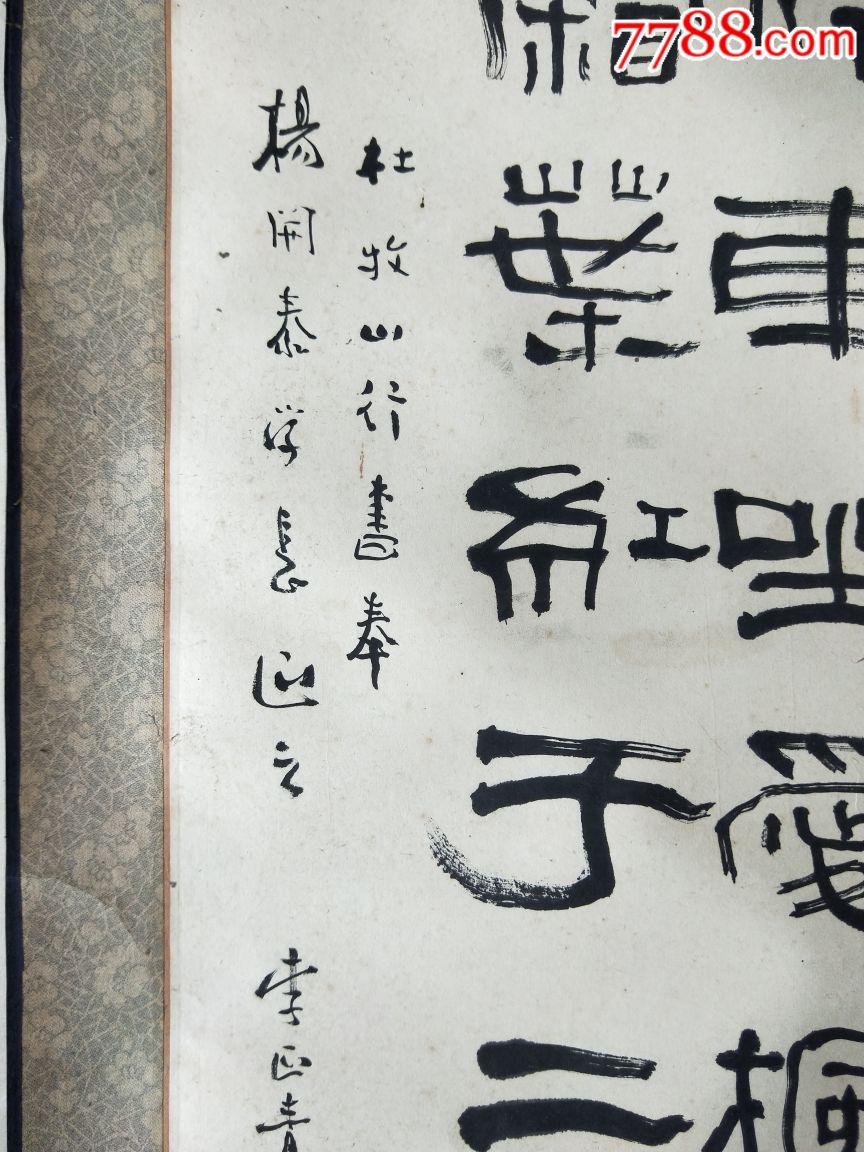 7788.com
車坐愛楓
霜葉紅于二
杜牧山行書奉
楊開泰学長正之
李正青